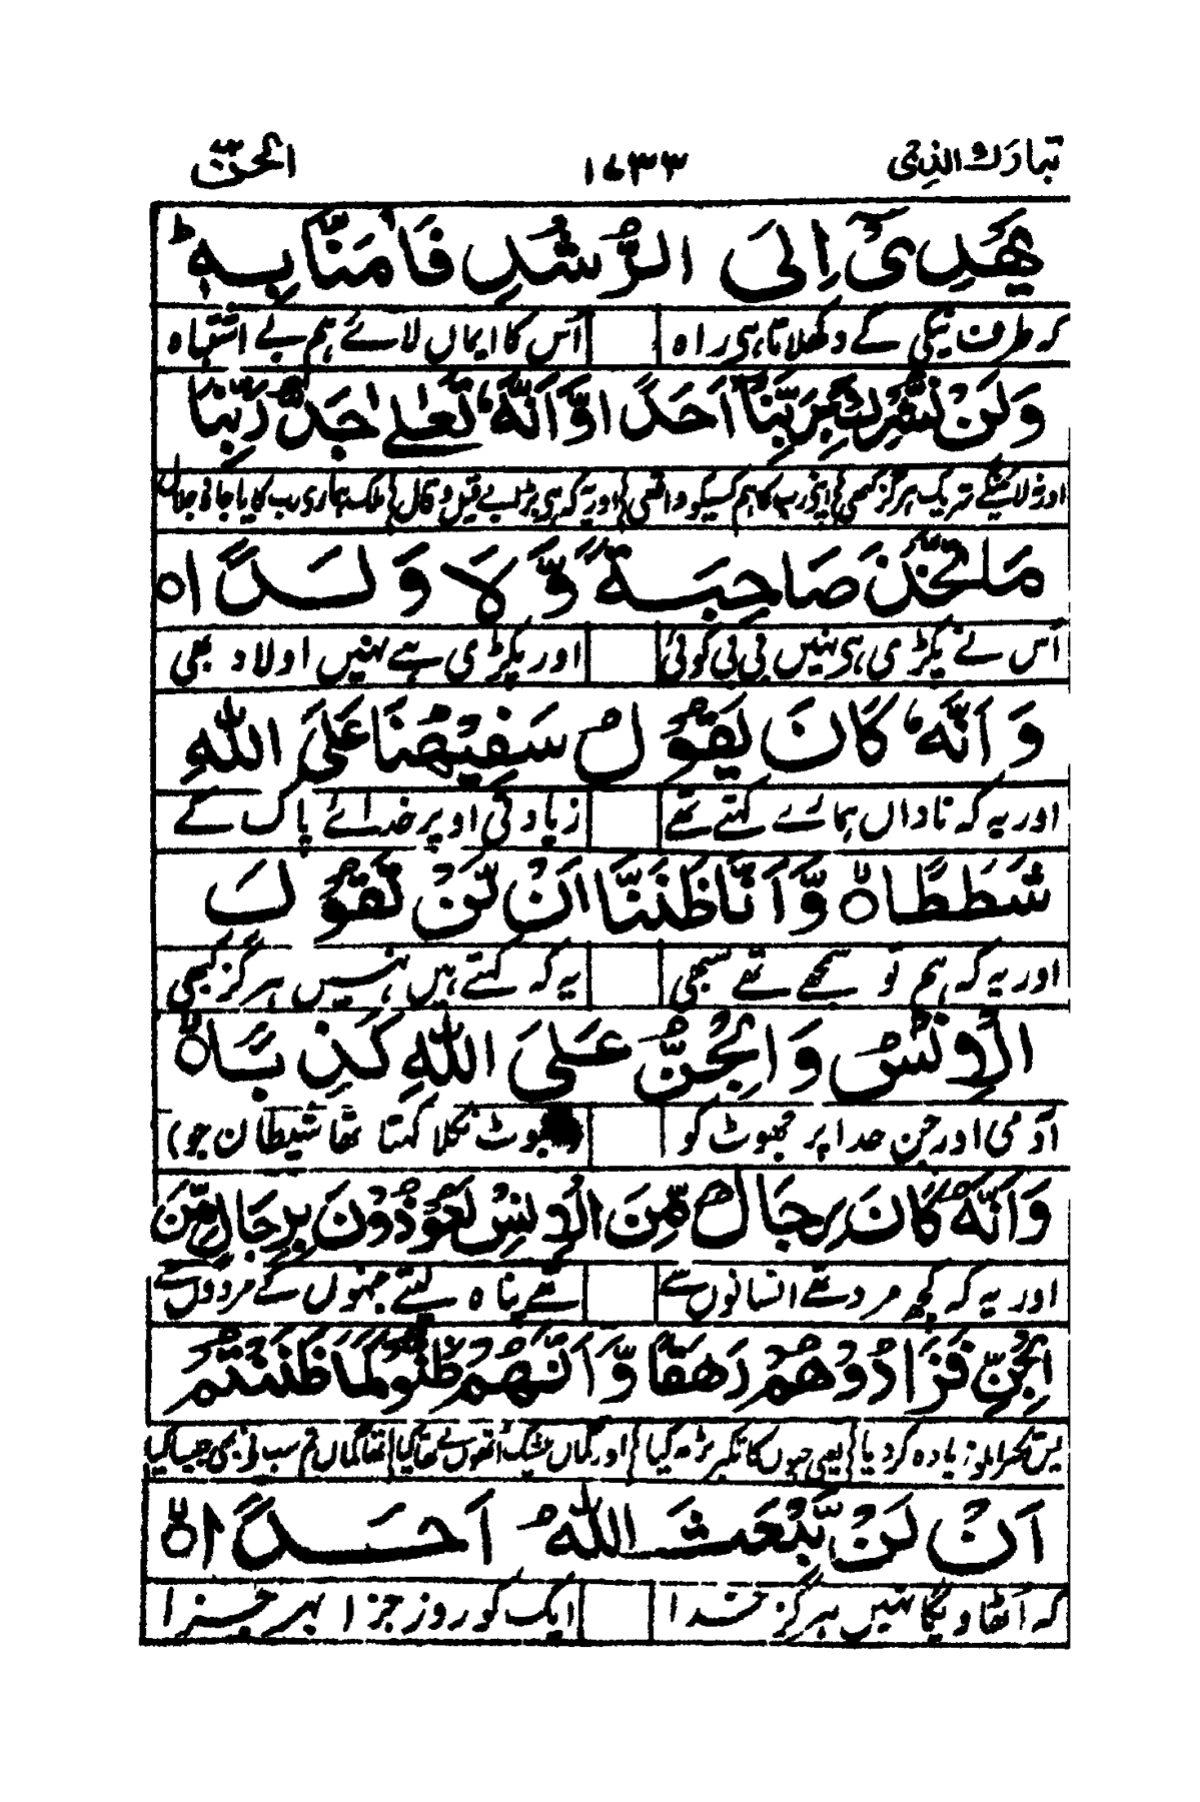 تبارك الذي ۱۷۳۳ الجن
يَهْدِيْٓ اِلَى الرُّشْدِ فَاٰمَنَّا بِهٖ ؕ
کہ طرف نیکی کے دکھلاتا ہی راہ اُس کا ایماں لائے ہم بے اشتباہ
وَلَنْ نُّشْرِكَ بِرَبِّنَآ اَحَدًا وَّاَنَّهٗ تَعٰلٰى جَدُّ رَبِّنَا
اور نہ لائینگے شریک ہرگز کبھی اپنی رب کا ہم کسیکو واقعی اور یہ کہ ہی بڑا بے قیل و قال ملک ہماری رب کا یا جاہ و جلال
مَا اتَّخَذَ صَاحِبَةً وَّلَا وَلَدًا ۙ
اُس نے پکڑی ہی نہیں بی بی کوئی اور پکڑی ہے نہیں اولاد بھی
وَاَنَّهٗ كَانَ يَقُوْلُ سَفِيْهُنَا عَلَى اللّٰهِ
اور یہ کہ ناداں ہمارے کہتے تھے زیادتی اوپر خدائے پاک کے
شَطَطًا ۙ وَّاَنَّا ظَنَنَّآ اَنْ لَّنْ تَقُوْلَ
اور یہ کہ ہم تو سمجھے تھے سبھی یہ کہ کہتے ہیں نہیں ہرگز کبھی
الْاِنْسُ وَالْجِنُّ عَلَى اللّٰهِ كَذِبًا ۙ
آدمی اور جن خدا پر جھوٹ کو (جھوٹ نکلا کہتا تھا شیطان جو)
وَاَنَّهٗ كَانَ رِجَالٌ مِّنَ الْاِنْسِ يَعُوْذُوْنَ بِرِجَالٍ مِّنَ
اور یہ کہ کچھ مرد تھے انسانوں سے تھے پناہ لیتے جنوں کے مردوں سے
الْجِنِّ فَزَادُوْهُمْ رَهَقًا وَّاَنَّهُمْ ظَنُّوْا كَمَا ظَنَنْتُمْ
زیادہ کردیا یعنی جنوں کا تکبر بڑھ گیا اور گماں بیشک اُنھوں نے تھا کیا تھا گماں تم سب نے بھی جیسا کیا
اَنْ لَّنْ يَّبْعَثَ اللّٰهُ اَحَدًا ۙ
کہ اُٹھاویگا نہیں ہرگز خدا ایک کو روز جزا بہر جزا